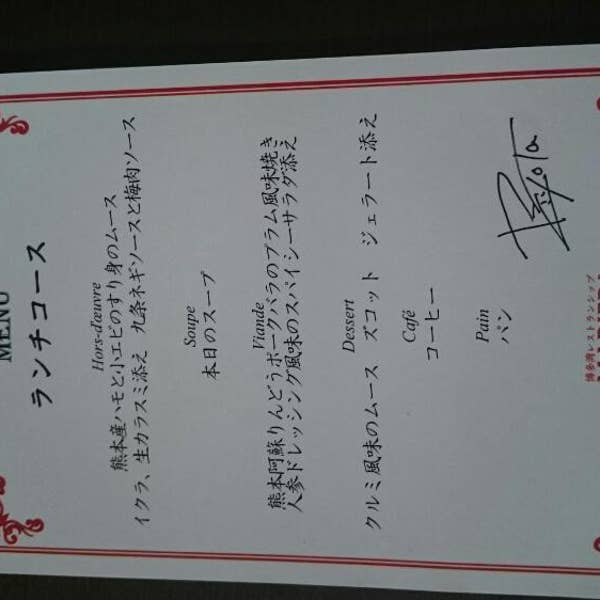 MENU
ランチコース
Hors-d'œuvre
熊本産ハモと小エビのすり身のムース
イクラ、生カラスミ添え 九条ネギソースと梅肉ソース
Soupe
本日のスープ
Viande
熊本阿蘇りんどうポークバラのプラム風味焼き
人参ドレッシング風味のスパイシーサラダ添え
Dessert
クルミ風味のムース ズコット ジェラート添え
Café
コーヒー
Pain
パン
博多湾レストランシップ